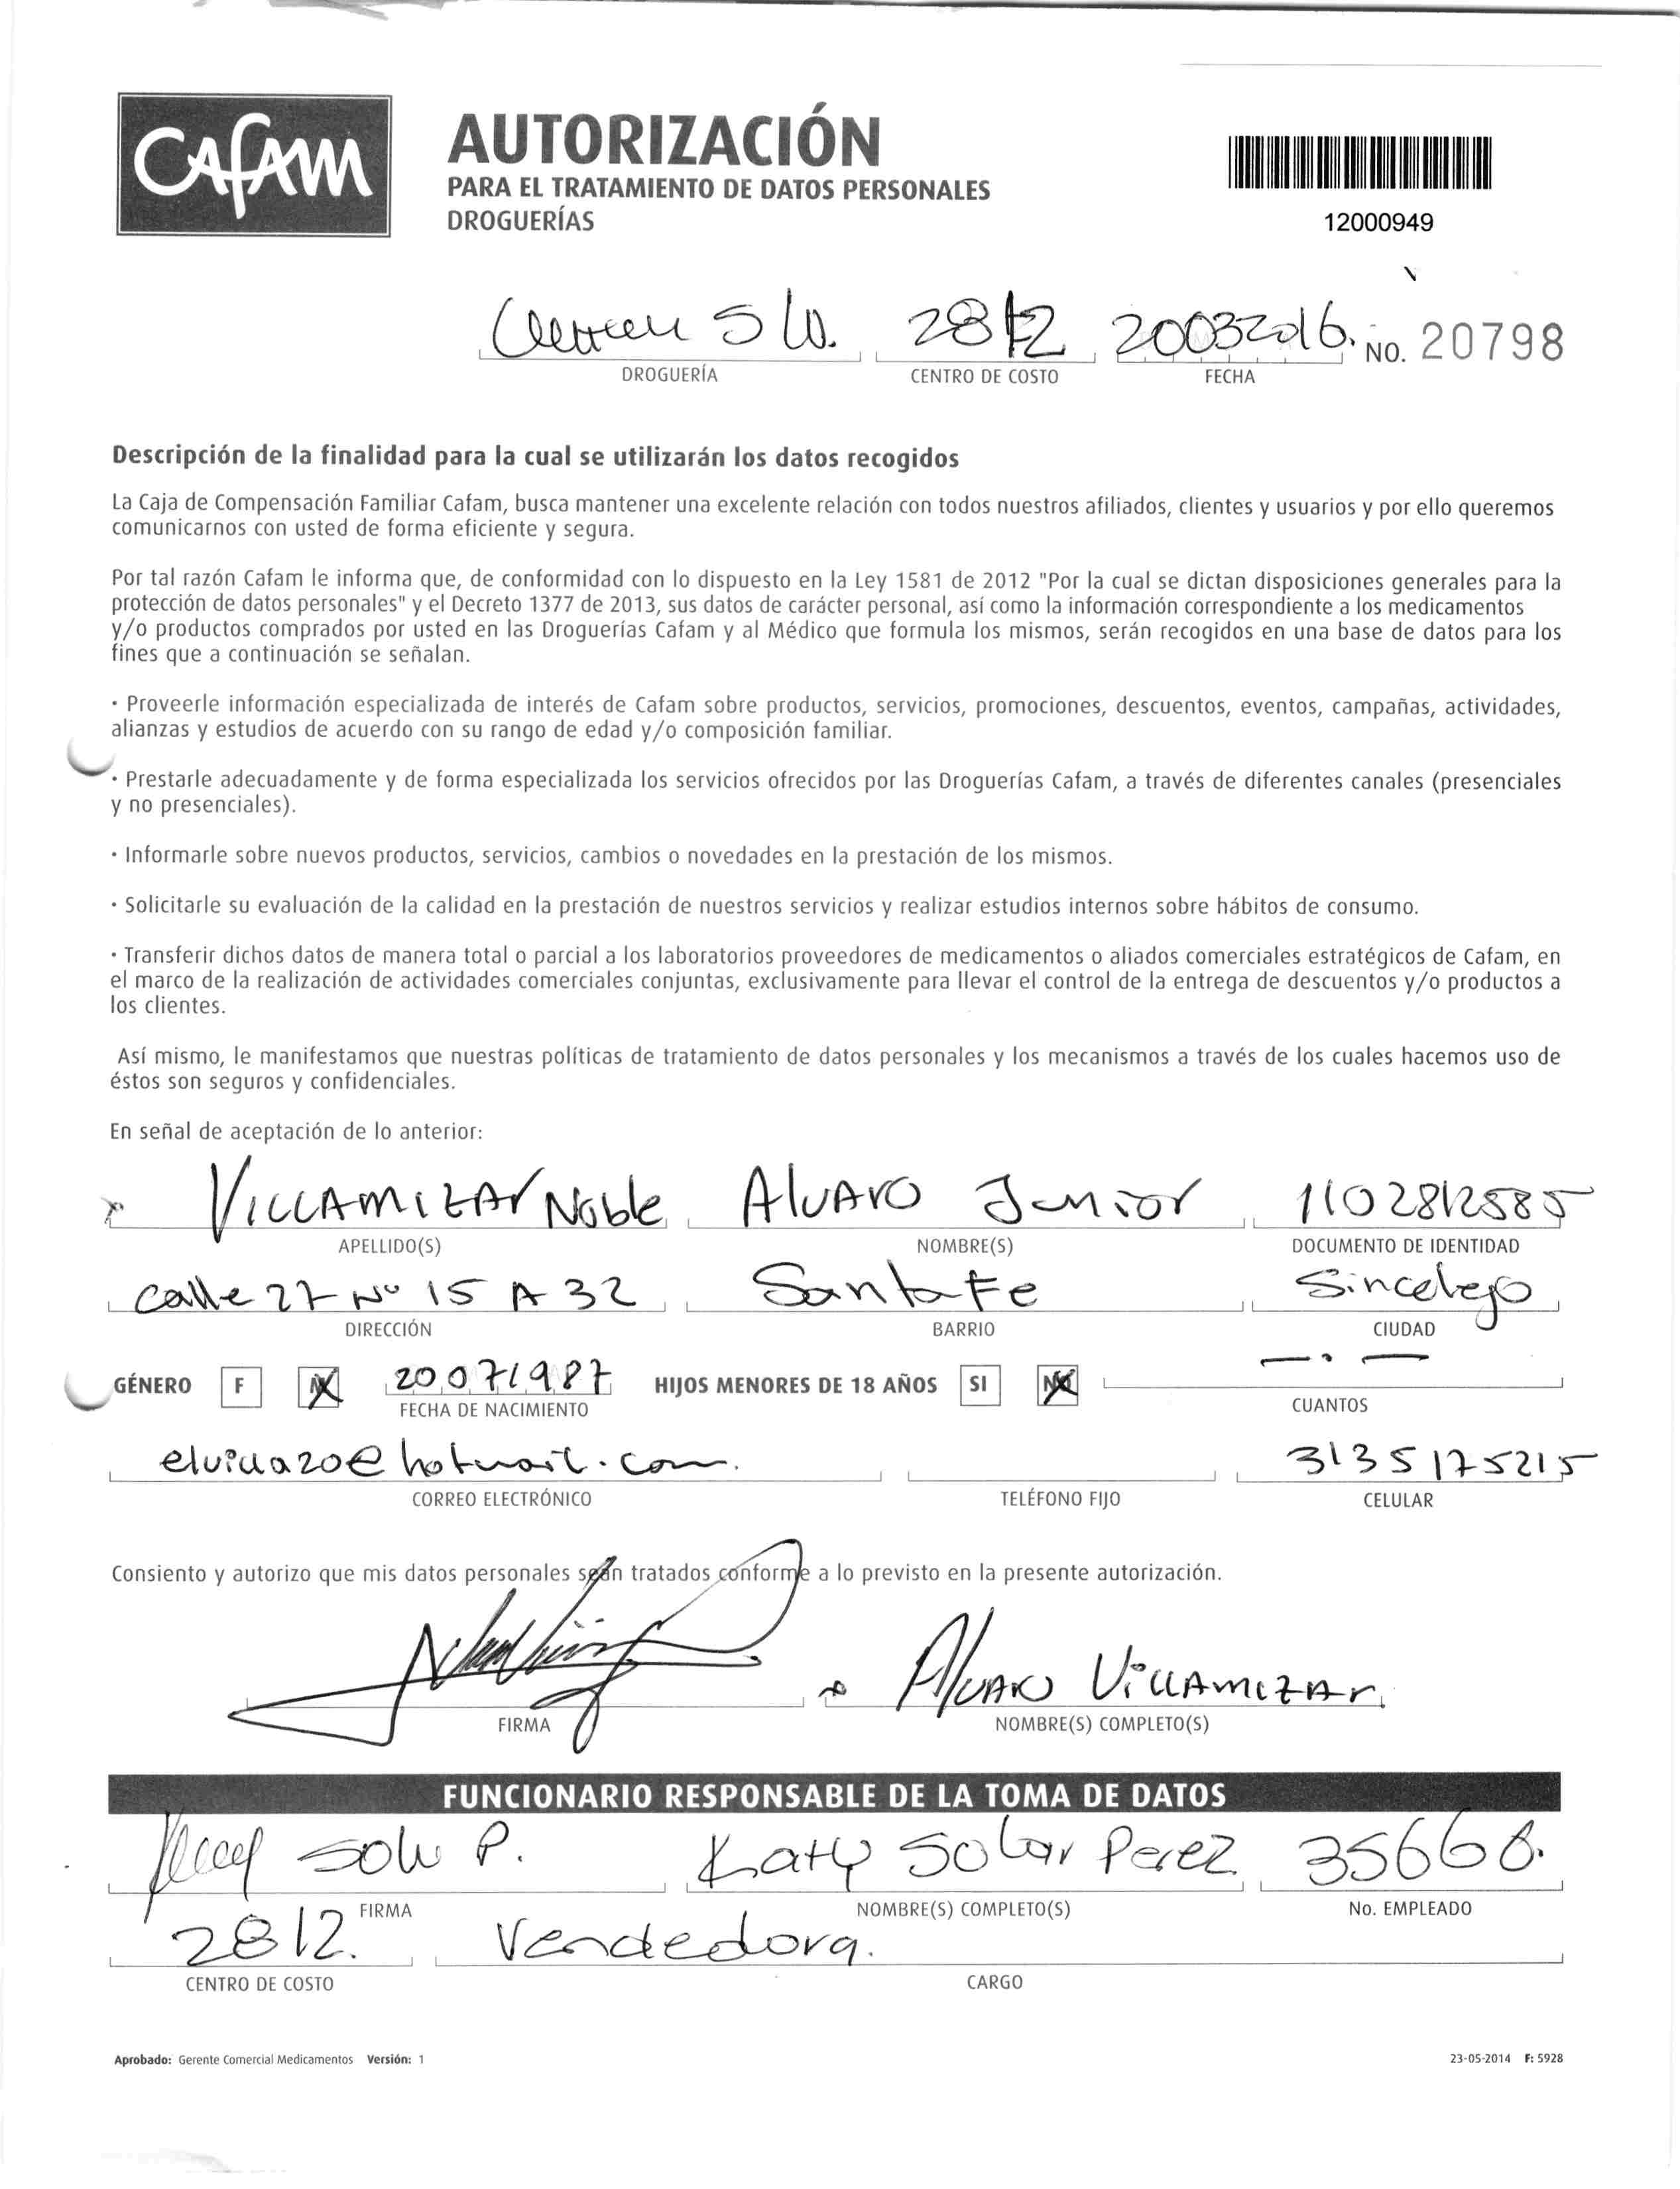 CAFAM
AUTORIZACIÓN
PARA EL TRATAMIENTO DE DATOS PERSONALES
DROGUERÍAS
12000949
2812 20032016. NO. 20798
DROGUERÍA CENTRO DE COSTO FECHA
Descripción de la finalidad para la cual se utilizarán los datos recogidos
La Caja de Compensación Familiar Cafam, busca mantener una excelente relación con todos nuestros afiliados, clientes y usuarios y por ello queremos
comunicarnos con usted de forma eficiente y segura.
Por tal razón Cafam le informa que, de conformidad con lo dispuesto en la Ley 1581 de 2012 "Por la cual se dictan disposiciones generales para la
protección de datos personales" y el Decreto 1377 de 2013, sus datos de carácter personal, así como la información correspondiente a los medicamentos
y/o productos comprados por usted en las Droguerías Cafam y al Médico que formula los mismos, serán recogidos en una base de datos para los
fines que a continuación se señalan.
· Proveerle información especializada de interés de Cafam sobre productos, servicios, promociones, descuentos, eventos, campañas, actividades,
alianzas y estudios de acuerdo con su rango de edad y/o composición familiar.
· Prestarle adecuadamente y de forma especializada los servicios ofrecidos por las Droguerías Cafam, a través de diferentes canales (presenciales
y no presenciales).
· Informarle sobre nuevos productos, servicios, cambios o novedades en la prestación de los mismos.
· Solicitarle su evaluación de la calidad en la prestación de nuestros servicios y realizar estudios internos sobre hábitos de consumo.
· Transferir dichos datos de manera total o parcial a los laboratorios proveedores de medicamentos o aliados comerciales estratégicos de Cafam, en
el marco de la realización de actividades comerciales conjuntas, exclusivamente para llevar el control de la entrega de descuentos y/o productos a
los clientes.
Así mismo, le manifestamos que nuestras políticas de tratamiento de datos personales y los mecanismos a través de los cuales hacemos uso de
éstos son seguros y confidenciales.
En señal de aceptación de lo anterior:
Villamizar Noble Alvaro Junior 1102812585
APELLIDO(S) NOMBRE(S) DOCUMENTO DE IDENTIDAD
calle 27 Nº 15 A 32 Santa Fe Sincelejo
DIRECCIÓN BARRIO CIUDAD
GÉNERO F M 20071987 HIJOS MENORES DE 18 AÑOS SI NO
FECHA DE NACIMIENTO CUANTOS
elvilla20@hotmail.com. 3135175215
CORREO ELECTRÓNICO TELÉFONO FIJO CELULAR
Consiento y autorizo que mis datos personales sean tratados conforme a lo previsto en la presente autorización.
Alvaro Villamizar.
FIRMA NOMBRE(S) COMPLETO(S)
FUNCIONARIO RESPONSABLE DE LA TOMA DE DATOS
P. Katy Solar Perez 35668.
FIRMA NOMBRE(S) COMPLETO(S) No. EMPLEADO
2812. Vendedora.
CENTRO DE COSTO CARGO
Aprobado: Gerente Comercial Medicamentos Versión: 1 23-05-2014 F: 5928